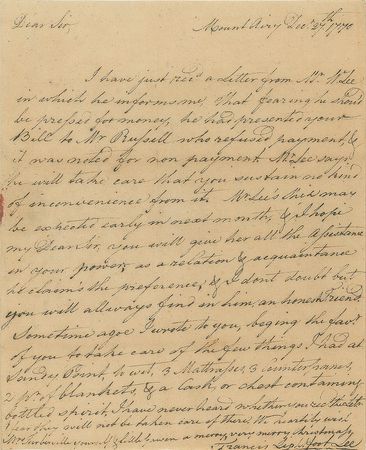 Dear Sir, Mount Airy Decr 27th 1770
I have just recd a Letter from Mr. Wm Lee
in which he informs me, That fearing he shoud
be pressed for money, he had presented your
Bill to Mr Russell who refused payment, &
it was noted for non payment. Mr Lee says
he will take care that you sustain no kind
of inconvenience from it. Mr Lee's Ship may
be expected early in next month, & I hope
my Dear Sir, you will give her all the Assistance
in your power, as a relation & acquaintance
he claims the preference, & I dont doubt but
you will allways find in him, an honest Friend.
Sometime agoe I wrote to you, beging the favr.
of you to take care of the few things I had at
Sandy Point, to wit, 3 Mattrasses, 3 counterpanes,
2 pr. of blankets, & a Cask, or chest containing
bottled spirit, I have never heard whether you recd the Lettr
fear they will not be taken care of there. We heartily wish
Mrs Turberville yourself & a merry, very merry christmas
Francis Lightfoot Lee